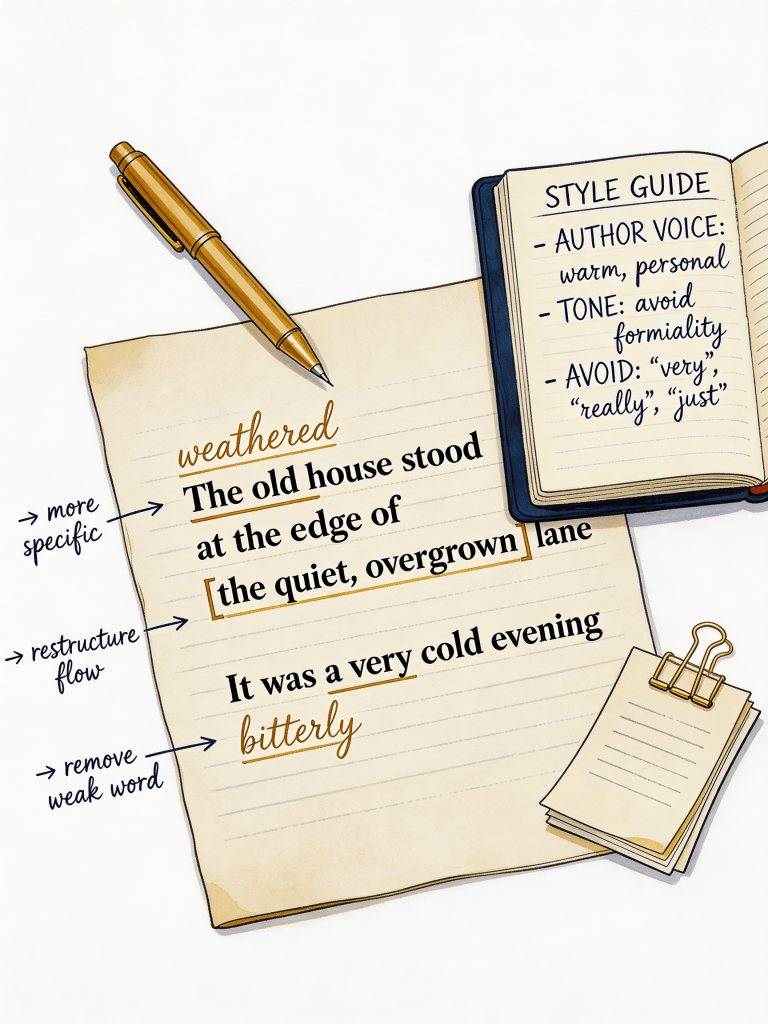 STYLE GUIDE
- AUTHOR VOICE:
warm, personal
- TONE: avoid
formiality
- AVOID: "very",
"really", "just"
weathered
The old house stood
at the edge of
[the quiet, overgrown] lane
It was a very cold evening
bitterly
→ more
specific
→ restructure
flow
→ remove
weak word